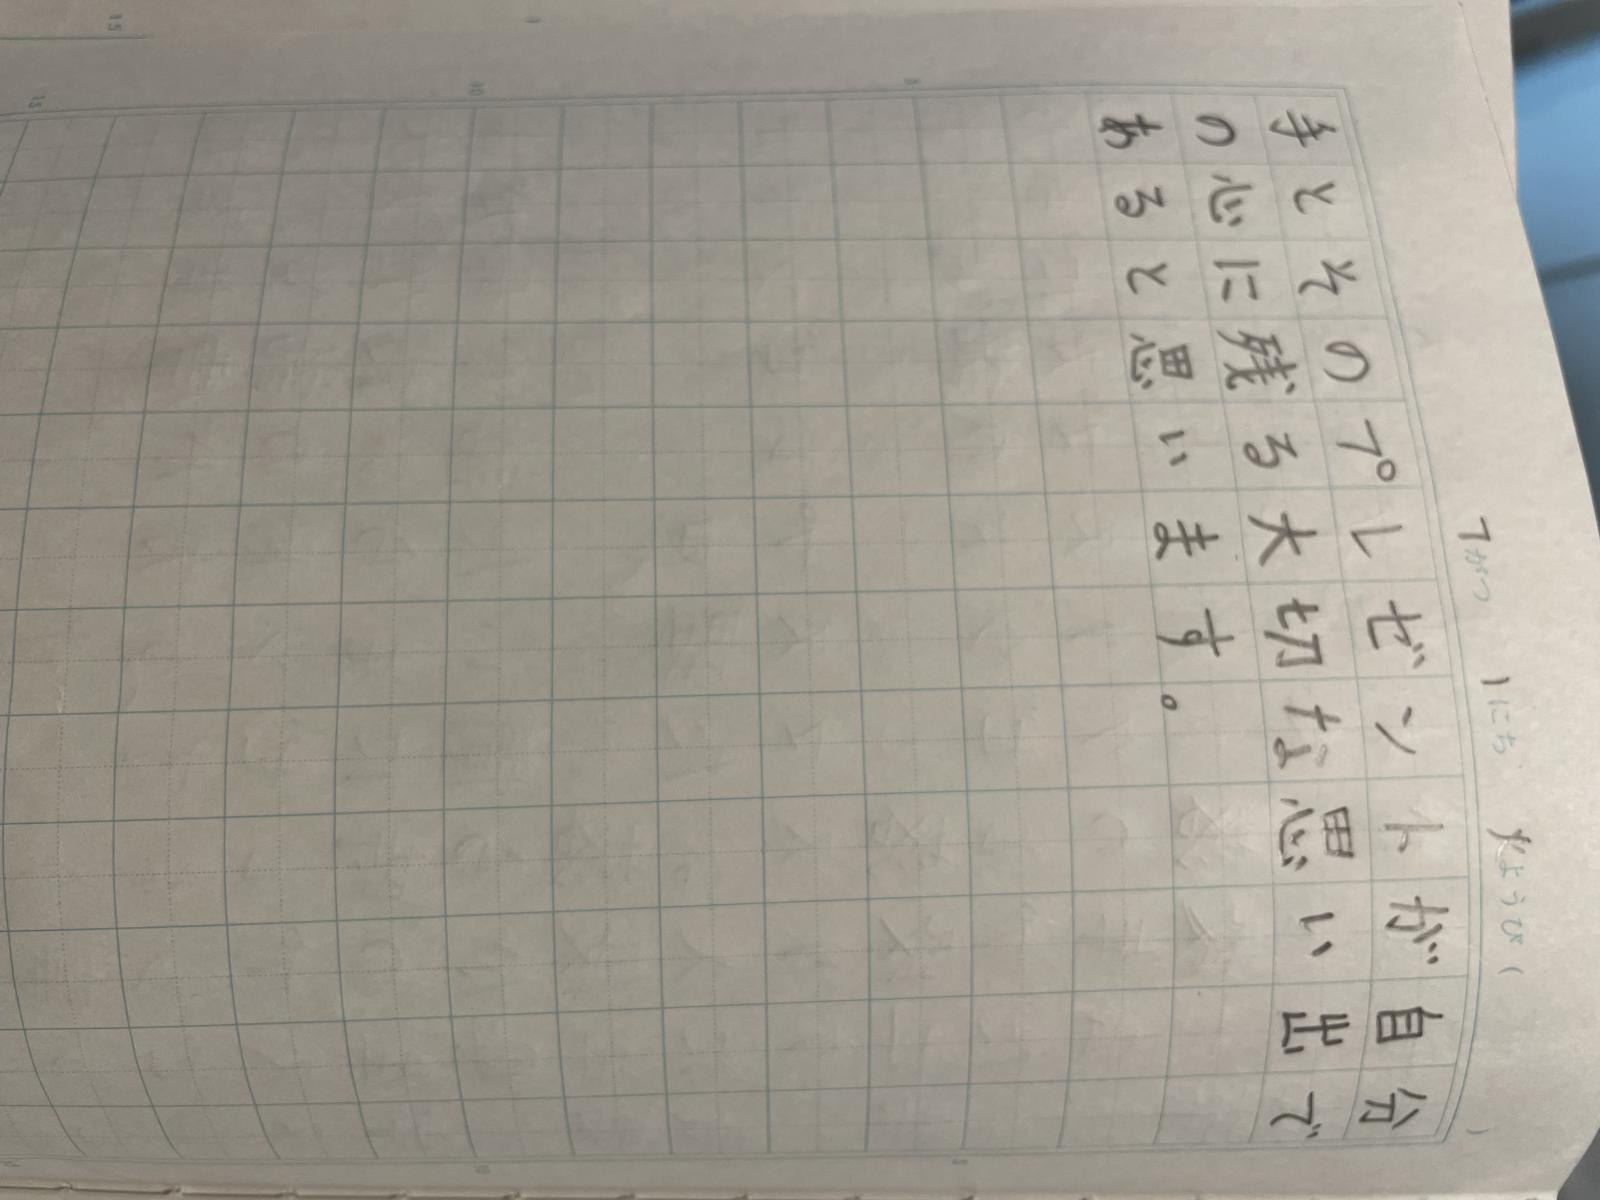 7がつ 1にち 火ようび ( )
手とそのプレゼントが自分
の心に残る大切な思い出で
あると思います。
5
10
15
15